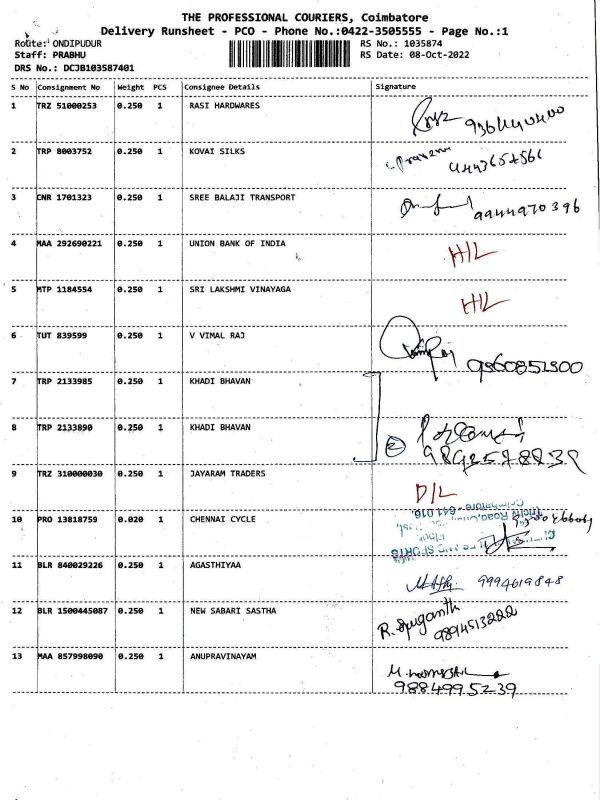 THE PROFESSIONAL COURIERS, Coimbatore
Delivery Runsheet - PCO - Phone No.:0422-3505555 - Page No.:1
Route: ONDIPUDUR RS No.: 1035874
Staff: PRABHU RS Date: 08-Oct-2022
DRS No.: DCJB103587401
S No Consignment No Weight PCS Consignee Details Signature
1 TRZ 51000253 0.250 1 RASI HARDWARES
2 TRP 8003752 0.250 1 KOVAI SILKS
3 CNR 1701323 0.250 1 SREE BALAJI TRANSPORT 9944970396
4 MAA 292690221 0.250 1 UNION BANK OF INDIA H/L
5 MTP 1184554 0.250 1 SRI LAKSHMI VINAYAGA H/L
6 TUT 839599 0.250 1 V VIMAL RAJ
9360851300
7 TRP 2133985 0.250 1 KHADI BHAVAN
8 TRP 2133890 0.250 1 KHADI BHAVAN 2
9 TRZ 310000030 0.250 1 JAYARAM TRADERS D/L
10 PRO 13818759 0.020 1 CHENNAI CYCLE
11 BLR 840029226 0.250 1 AGASTHIYAA 9994619848
12 BLR 1500445087 0.250 1 NEW SABARI SASTHA R. Suganth
9894513222
13 MAA 857998090 0.250 1 ANUPRAVINAYAM
9884995239